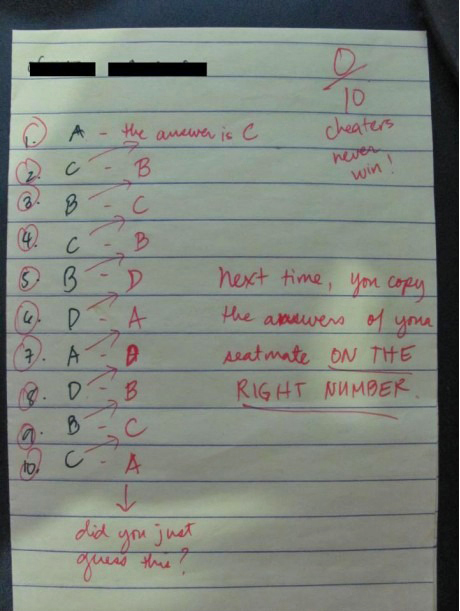 0
10
cheaters
never
win!
1. A - the answer is C
2. C - B
3. B - C
4. C - B
5. B - D
6. D - A
7. A - D
8. D - B
9. B - C
10. C - A
next time, you copy
the answers of your
seatmate ON THE
RIGHT NUMBER.
did you just
guess this?